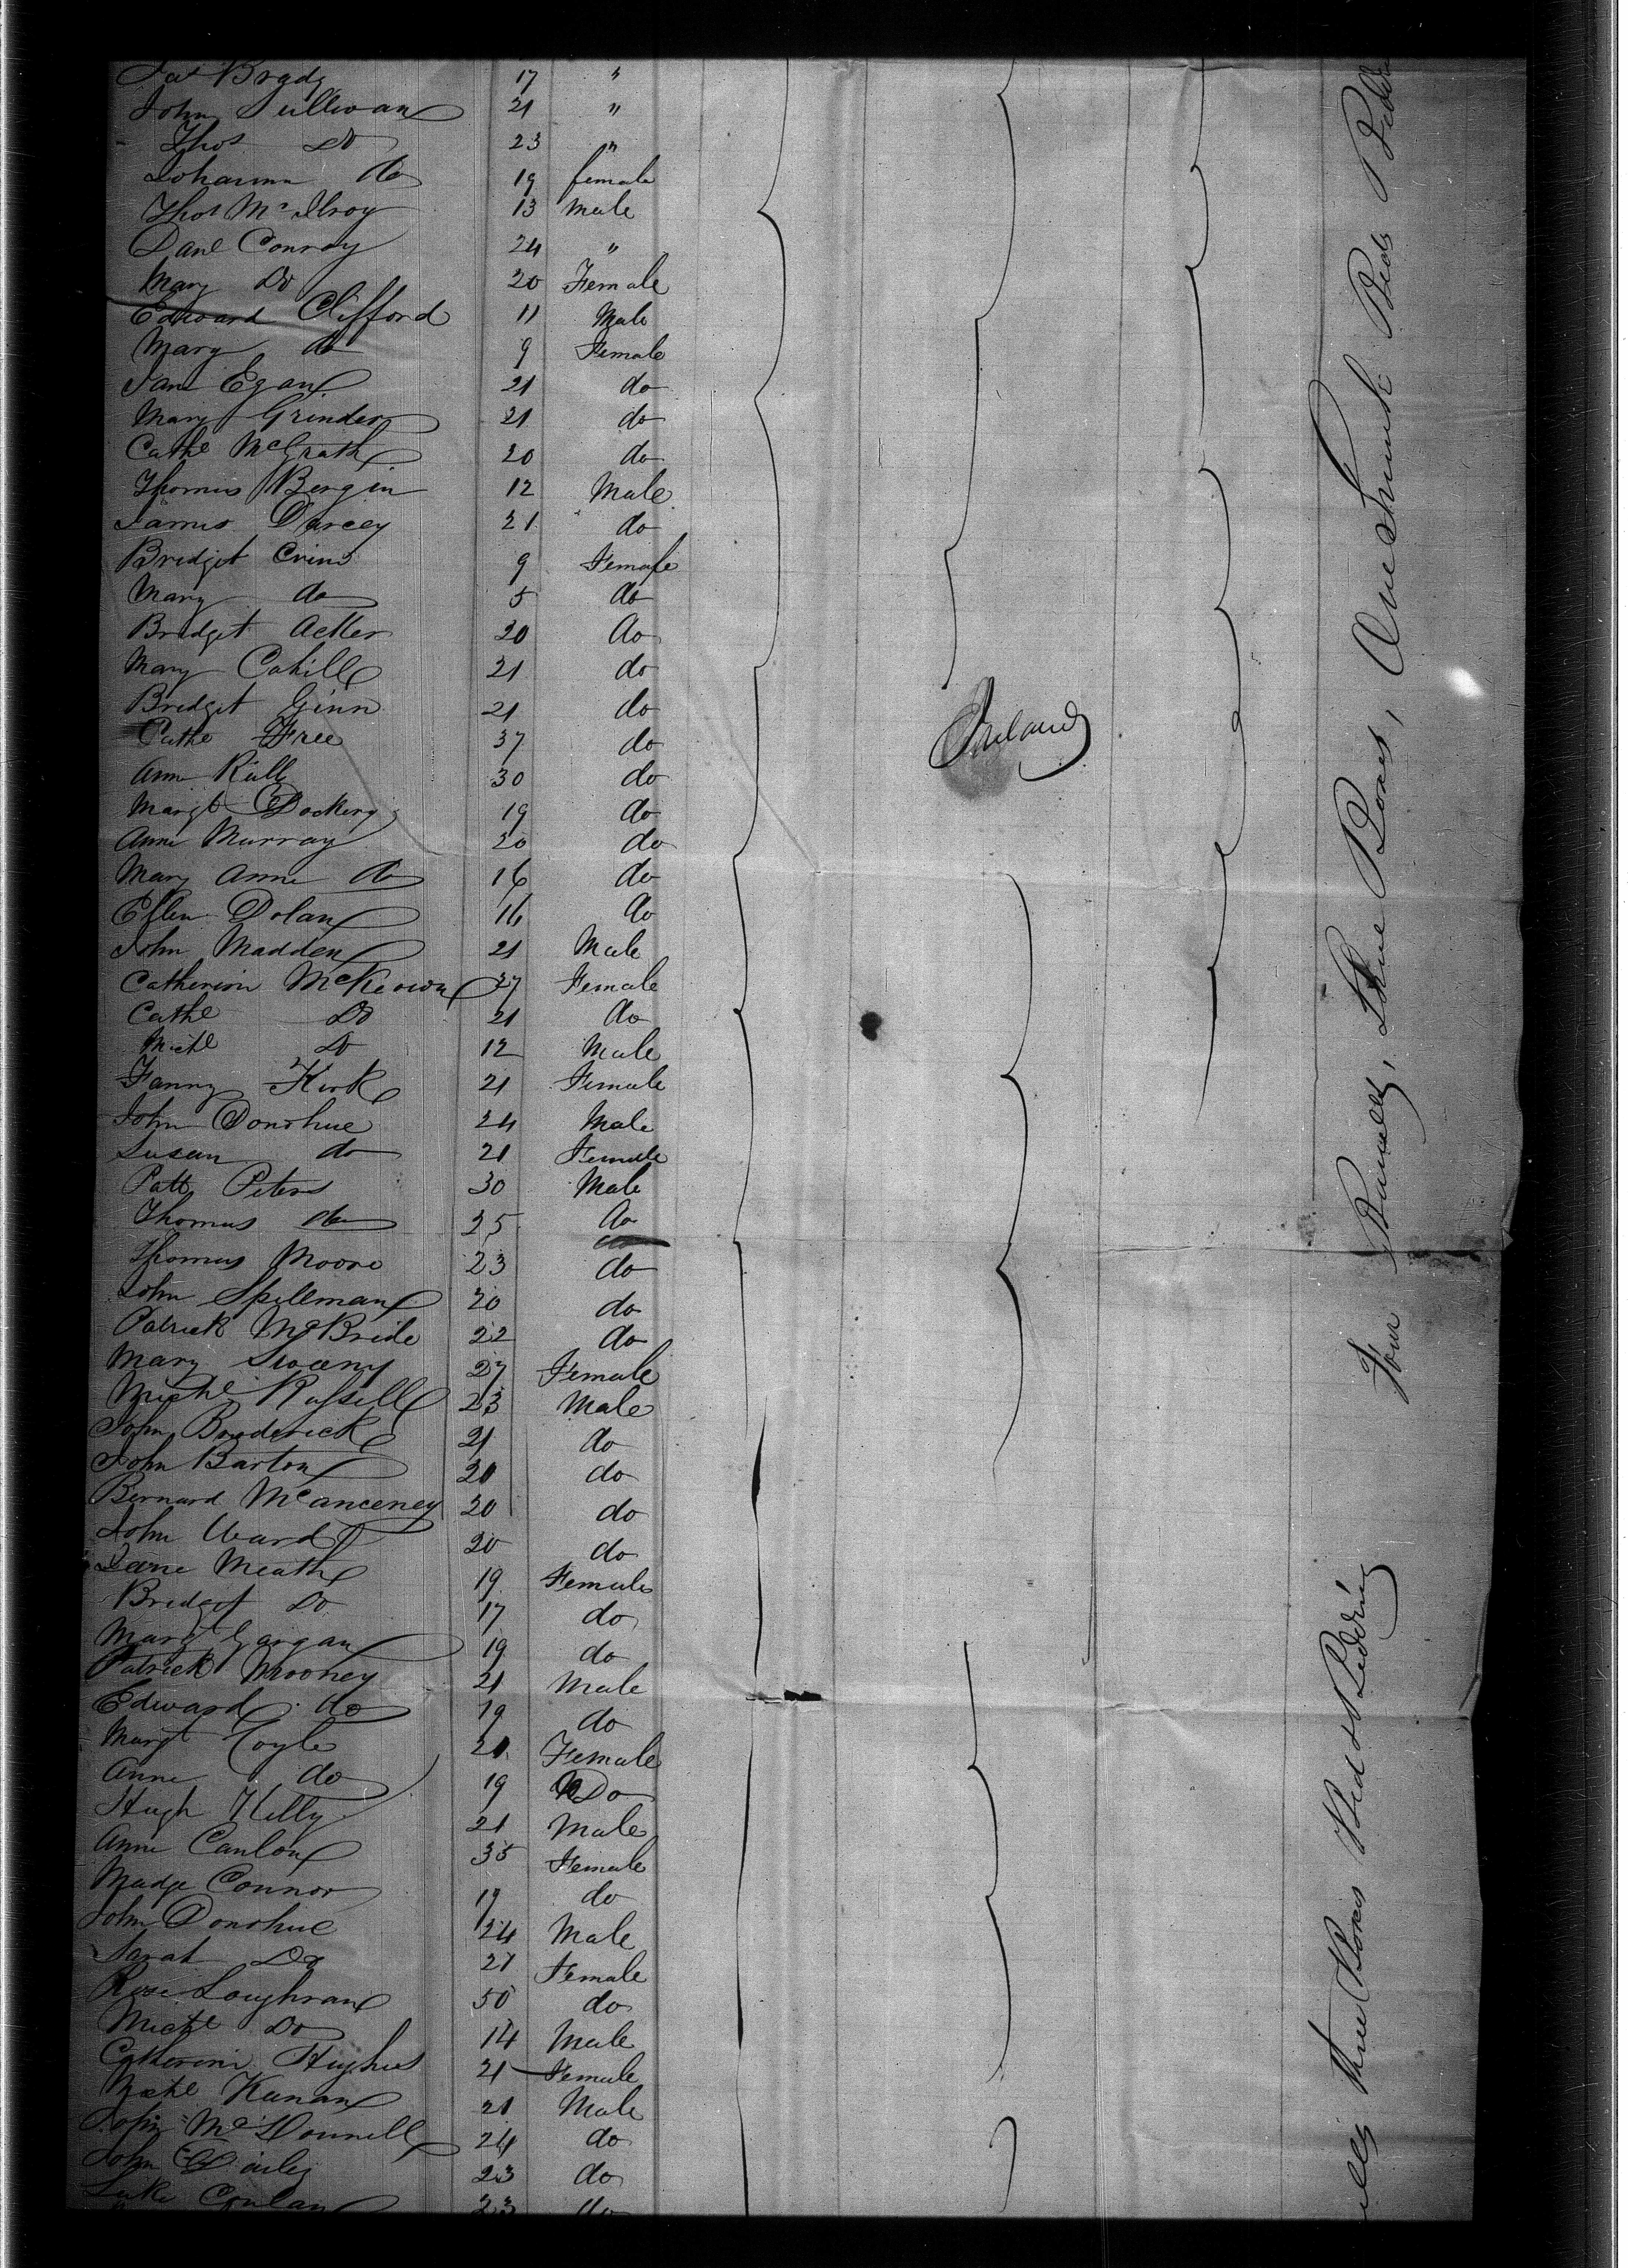 Jas Brady 17 "
John Sullivan 21 "
Thos Do 23 "
Johanna do 19 female
Thos McIlroy 13 Male
Danl Conroy 24 "
Mary Do 20 Female
Edward Clifford 11 Male
Mary do 9 Female
Jane Egan 21 do
Mary Grinder 21 do
Cathe McGrath 20 do
Thomas Bergin 12 Male
James Darcey 21 do
Bridget 9 Female
Mary do 5 do
Bridget Acker 20 do
Mary Cahill 21 do
Bridget Ginn 21 do
Cathe Free 37 do
Ireland
Ann 30 do
Margt Dockery 19 do
Anne Murray 20 do
Mary Anne do 16 do
Ellen Dolan 16 do
John Madden 21 Male
Catherine McKeown 37 Female
Cathe Do 21 do
Michl Do 12 Male
Fanny Kirk 21 Female
John Donohue 24 Male
Susan do 21 Female
Patt Peters 30 Male
Thomas do 25 do
Thomas Moore 23 do
John Spillman 20 do
Patrick McBride 22 do
Mary Sweeny 27 Female
Michl Russell 23 Male
John Broderick 21 do
John Barton 20 do
Bernard McAnceney 20 do
John Ward 20 do
Jane Meath 19 Female
Bridget Do 17 do
Mary Gargan 19 do
Patrick Mooney 21 Male
Edward do 19 do
Margt 21 Female
Anne do 19 Do
Hugh Kelly 21 Male
Anne Canlon 35 Female
Madge Connor 19 do
John Donohue 24 Male
Sarah Do 21 Female
Rose Loughran 50 do
Michl Do 14 Male
Catherine Hughes 21 Female
Michl Keenan 21 Male
John McDonnell 24 do
John 23 do
Luke 23 do
Four Barrells, Five Boxes, One Trunk Beds
Three Boxes Bed & Bedding